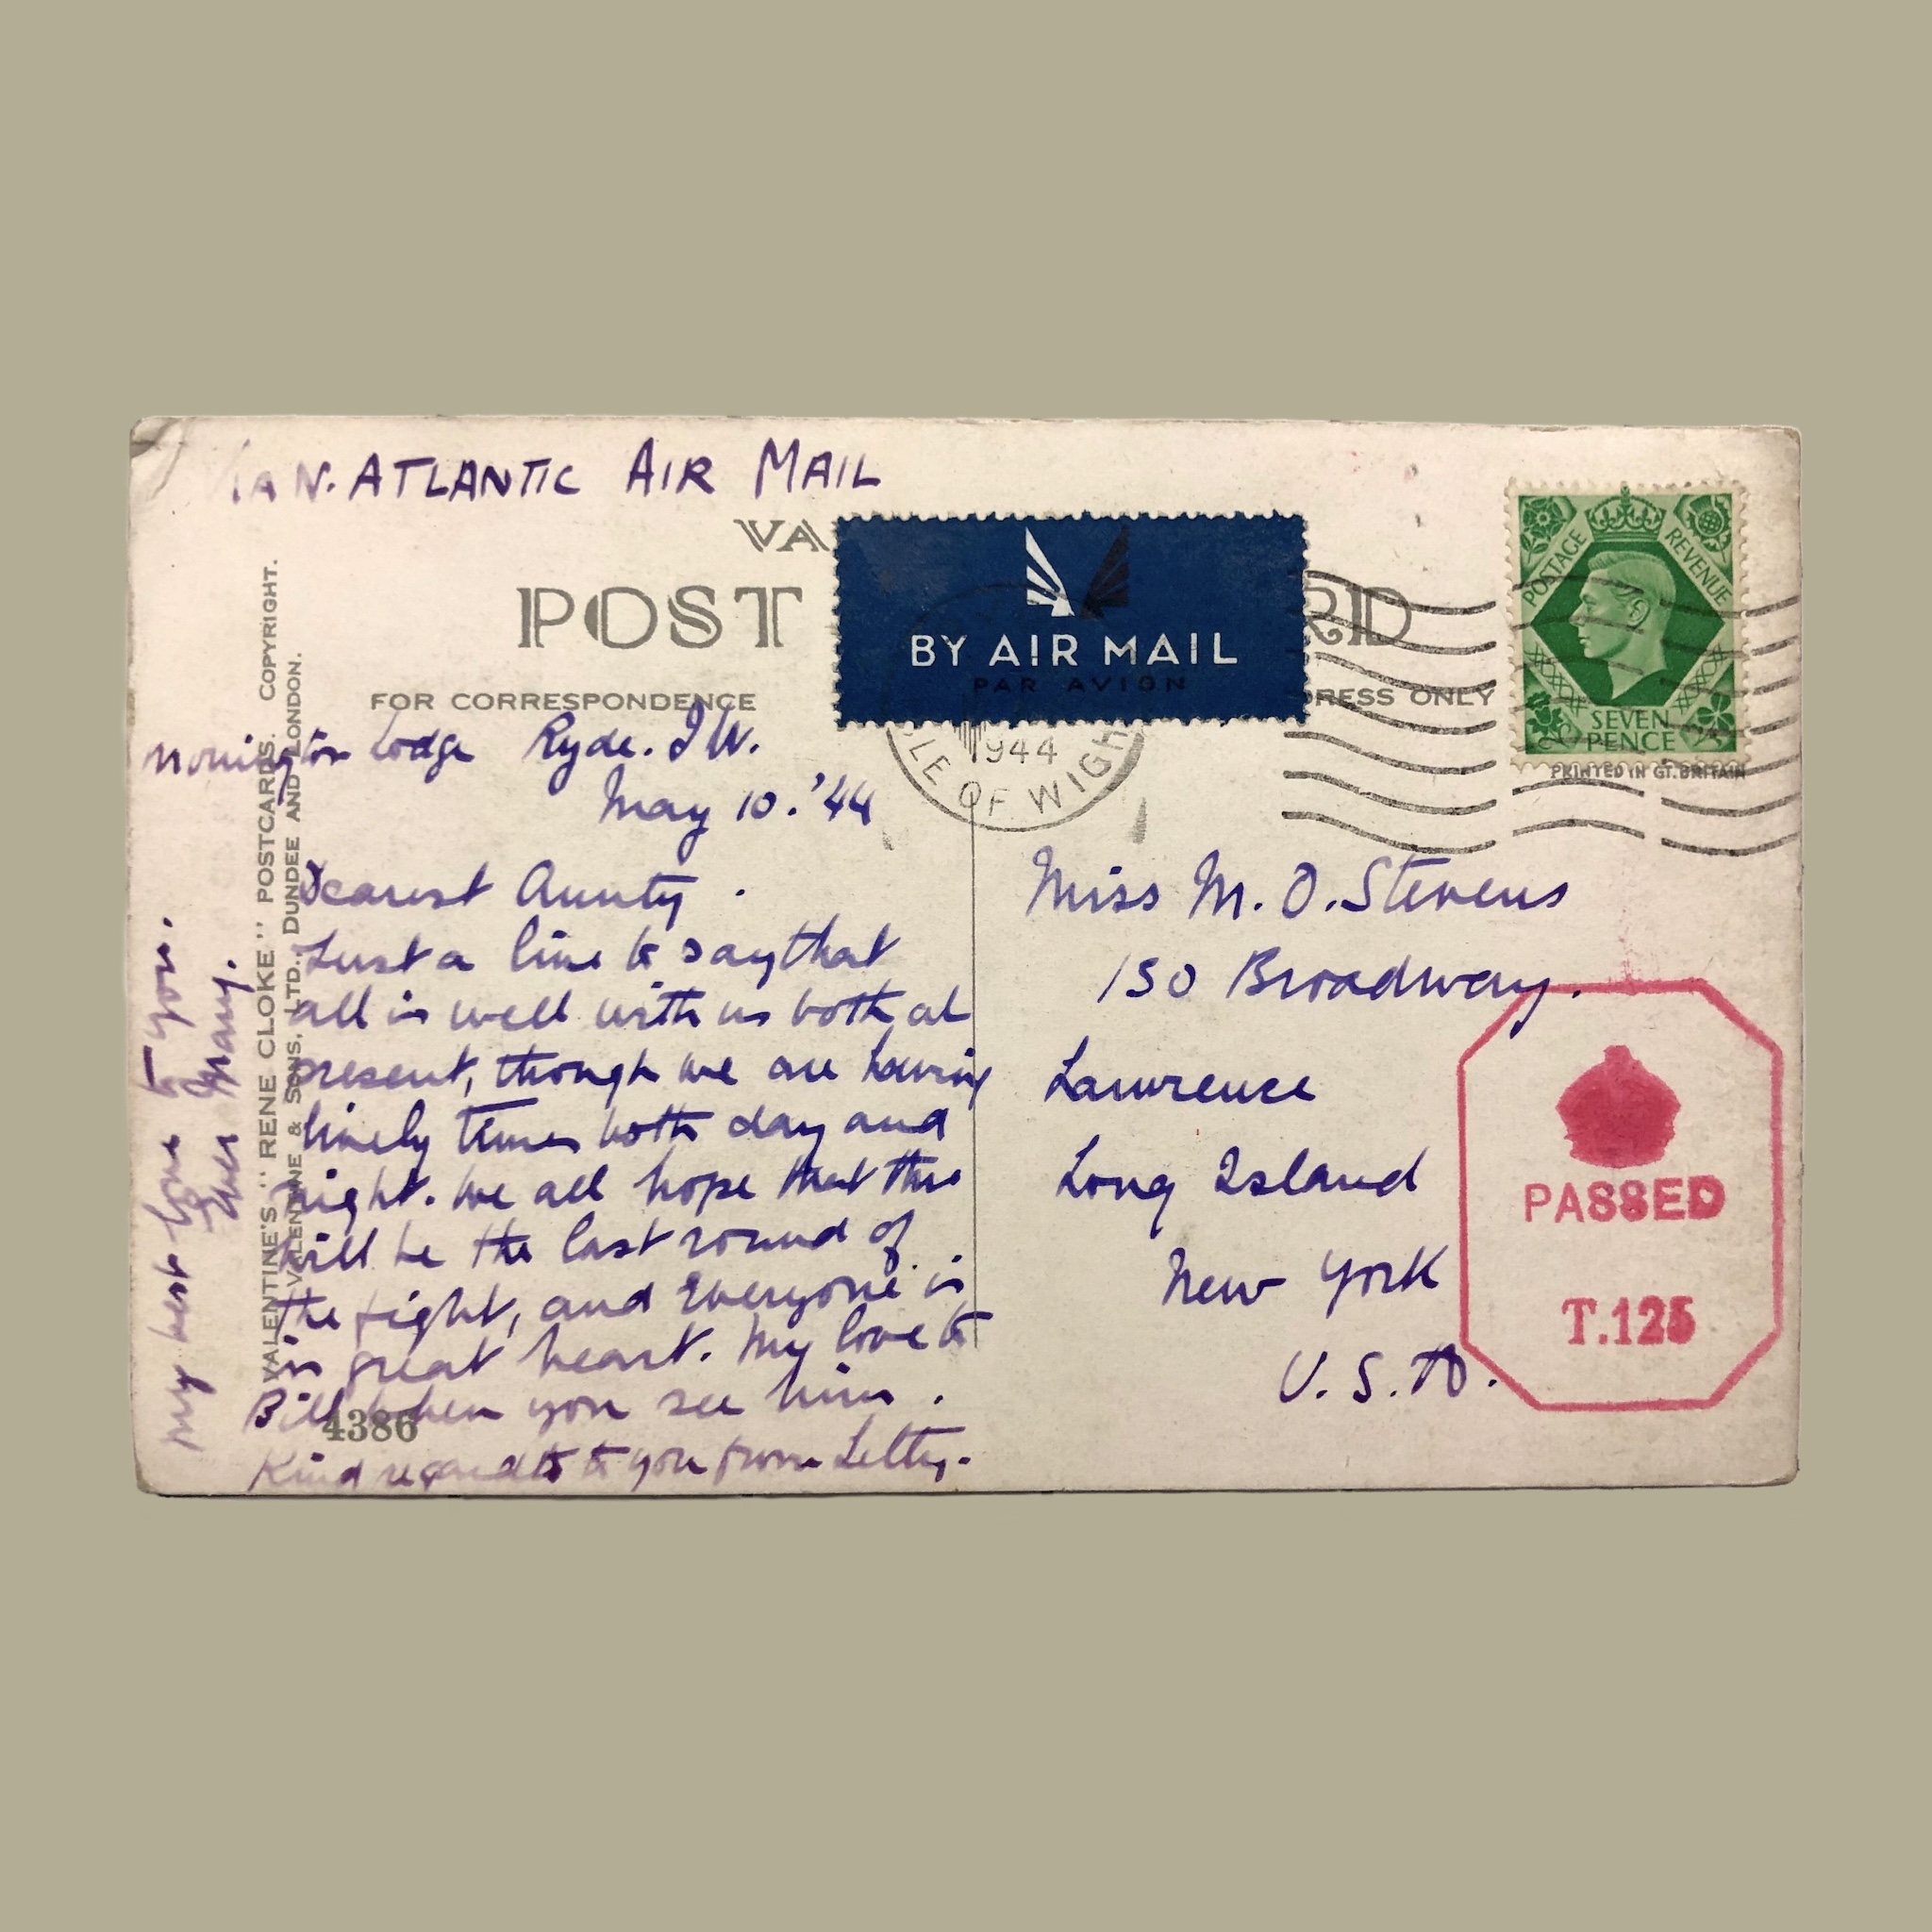 VIA N. ATLANTIC AIR MAIL
VA
POST RD
BY AIR MAIL
PAR AVION
FOR CORRESPONDENCE DRESS ONLY
POSTAGE REVENUE
SEVEN
PENCE
PRINTED IN GT. BRITAIN
1944
ISLE OF WIGHT
Mornington Lodge Ryde. I W.
May 10. '44
Dearest Aunty.
Just a line to say that
all is well with us both at
present, though we are having
lively times both day and
night. We all hope that this
will be the last round of
the fight, and everyone is
in great heart. My love to
Bill when you see him.
Kind regards to you from Letty.
My best love to you.
Ever Mary.
VALENTINE'S "RENE CLOKE" POSTCARDS. COPYRIGHT.
VALENTINE & SONS, LTD., DUNDEE AND LONDON.
4386
Miss M. O. Stevens
150 Broadway.
Lawrence
Long Island
New York
U. S. A.
PASSED
T.125